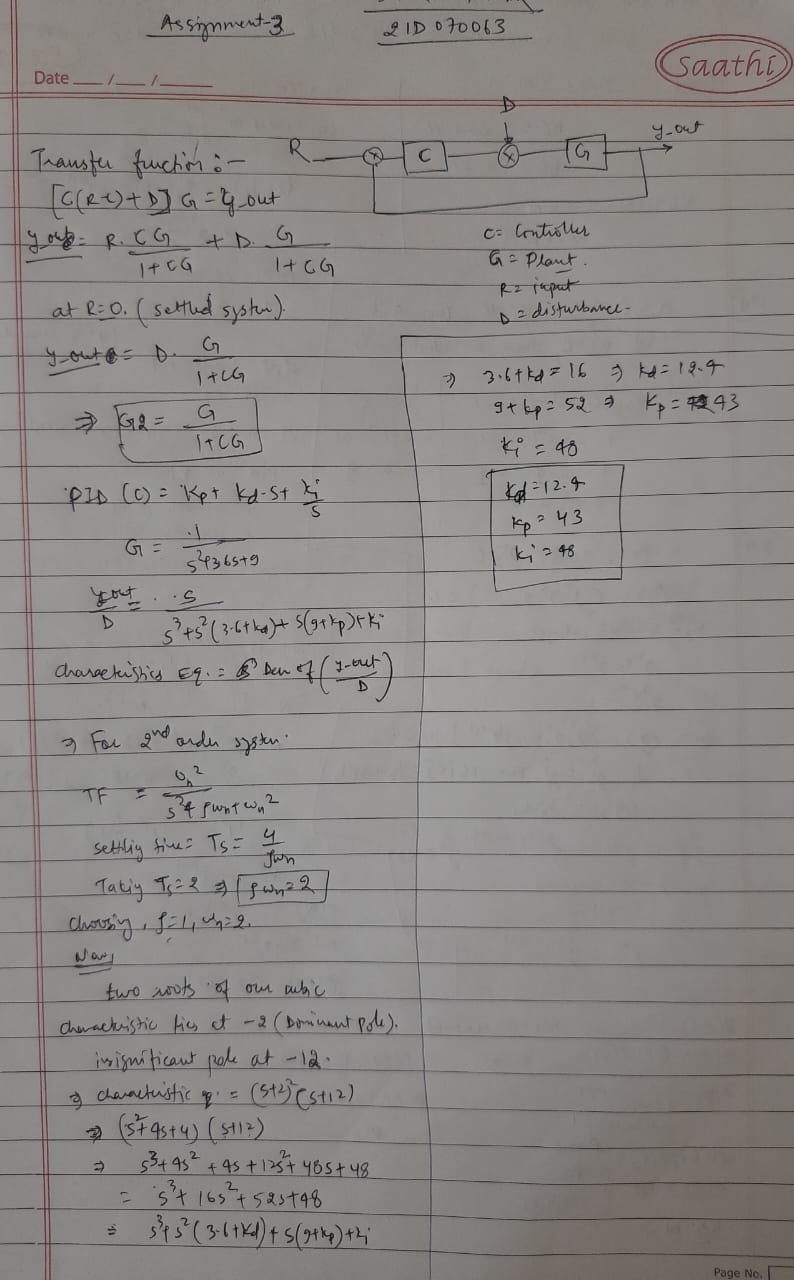 Assignment-3
21D070063
Saathi
Date __/__/____
D
R
C
G
y_out
Transfer function :-
[C(R-C)+D] G = y_out
y_out = R. CG/(1+CG) + D. G/(1+CG)
C = Controller
G = Plant.
R = input
D = disturbance-
at R=0. (settled system).
y_out = D. G/(1+CG)
⇒ G2 = G/(1+CG)
PID (C) = Kp + Kd·S + Ki/S
G = 1/(s²+3.6s+9)
y_out/D = S/(s³+s²(3.6+kd)+s(9+kp)+ki)
Characteristics Eq. = Den of (y_out/D)
⇒ For 2nd order system.
TF = ωn²/(s²+ρωn+ωn²)
Settling time = Ts = 4/ρωn
Taking Ts=2 ⇒ ρωn=2
Choosing, ρ=1, ωn=2.
Now,
two roots of our cubic
characteristic lies at -2 (Dominant pole).
insignificant pole at -12.
⇒ characteristic q. = (s+2)²(s+12)
⇒ (s²+4s+4) (s+12)
⇒ s³+4s²+4s+12s²+48s+48
= s³+16s²+52s+48
= s³+s²(3.6+kd)+s(9+kp)+ki
⇒ 3.6+kd = 16 ⇒ kd=12.4
9+kp = 52 ⇒ Kp = 43
Ki = 48
Kd=12.4
Kp = 43
Ki = 48
Page No.